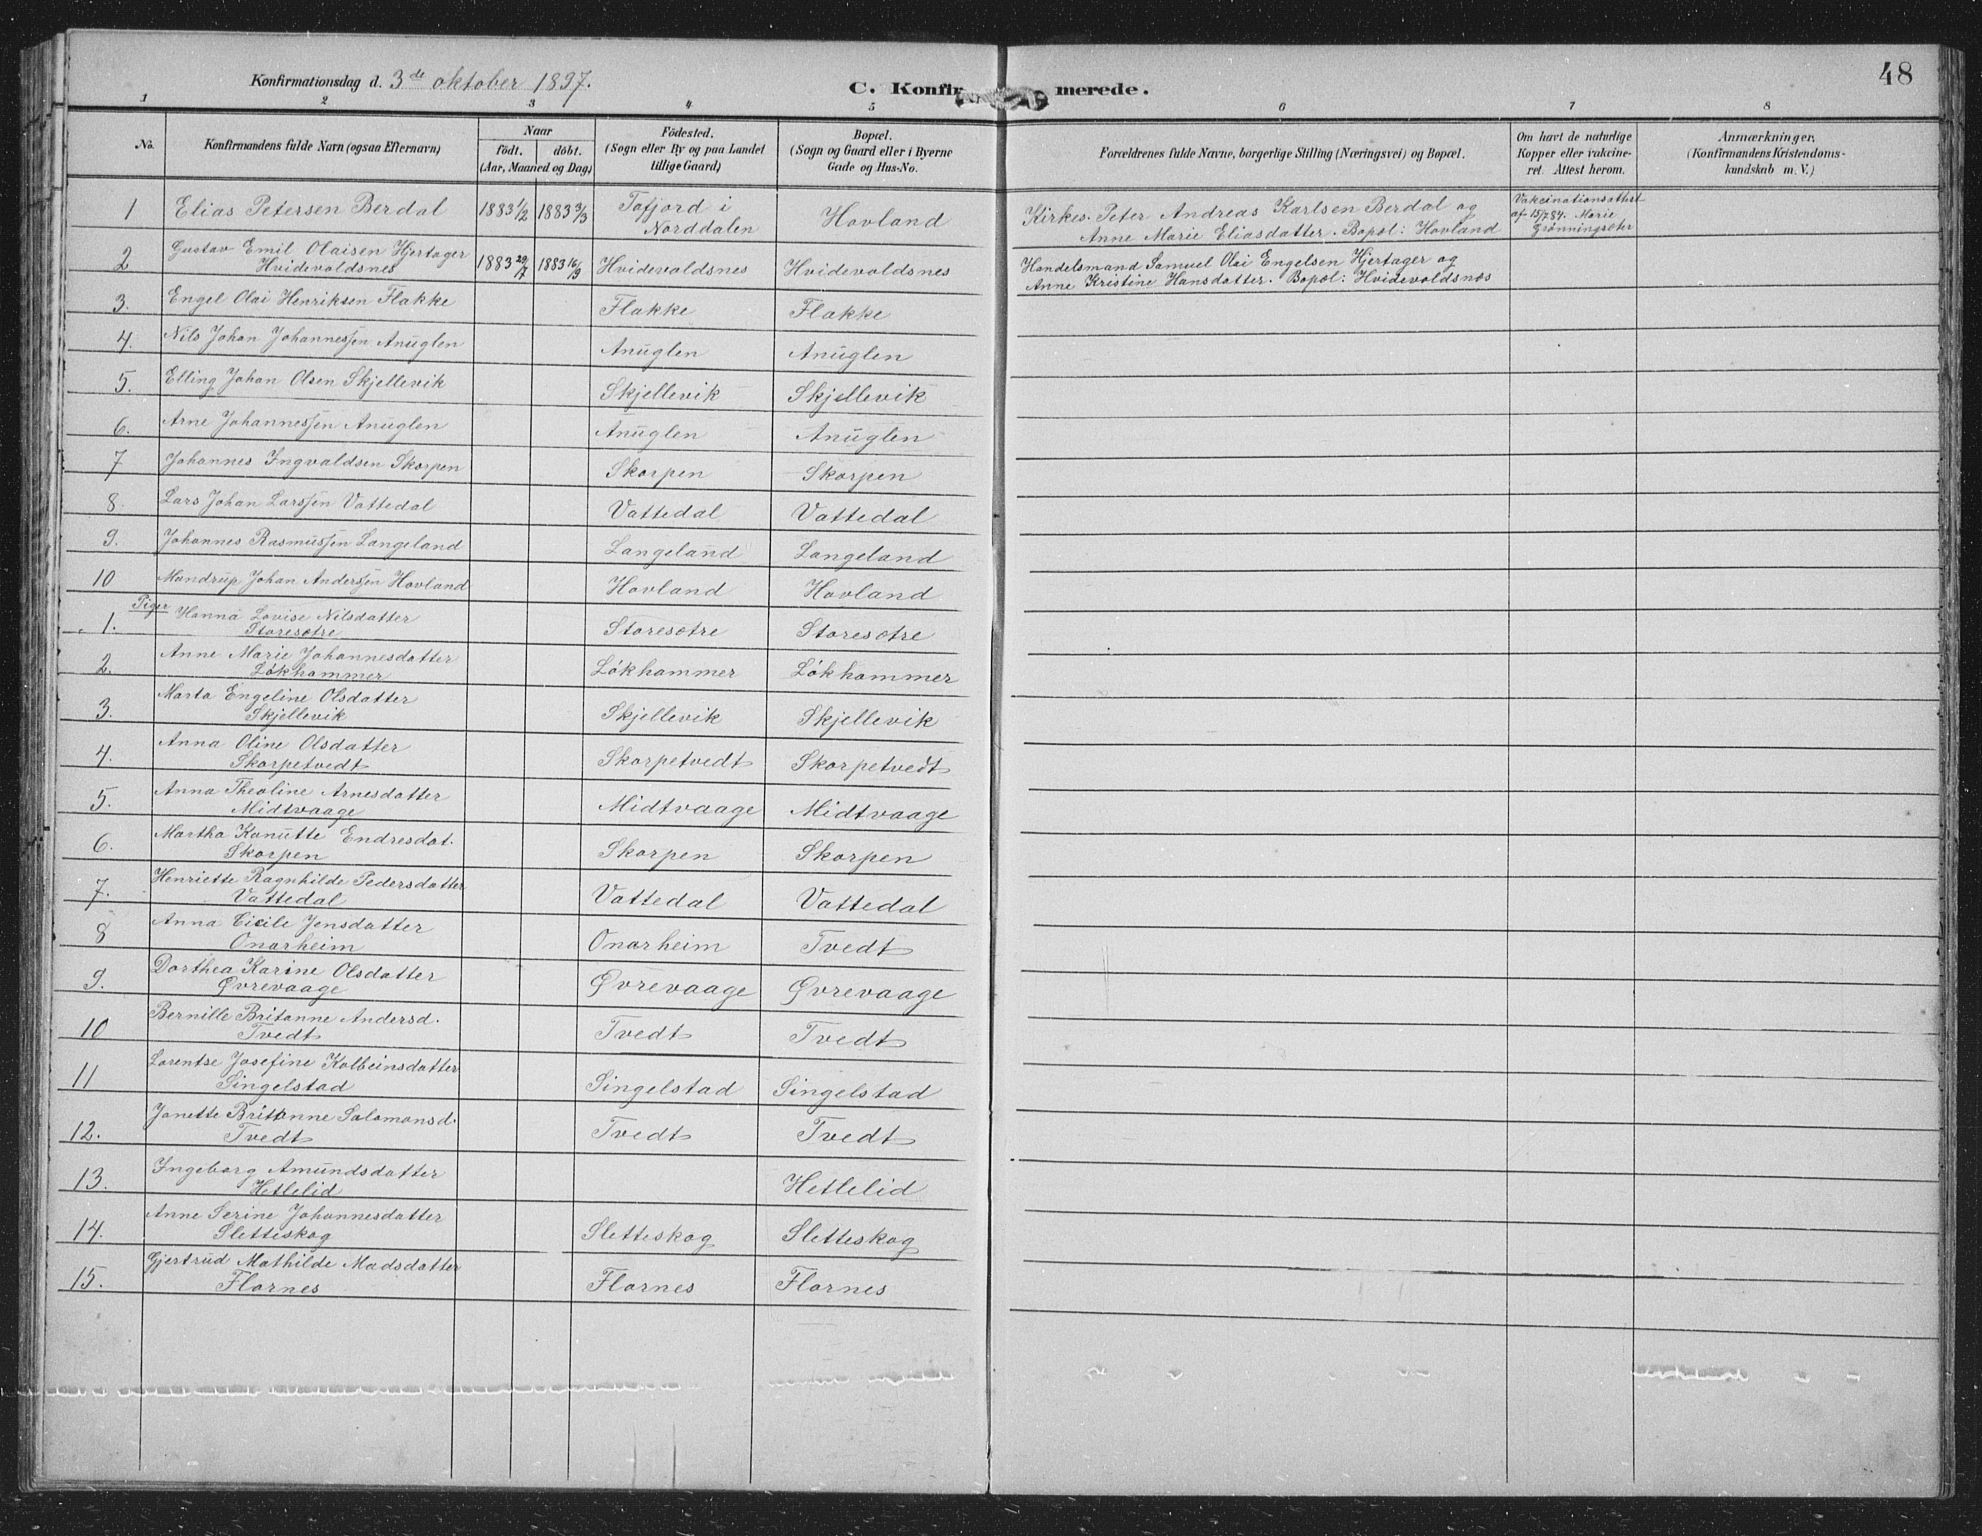 48
Konfirmationsdag d. 3de oktober 1897.
C. Konfir merede.
1 2 3 4 5 6 7 8
No.
Konfirmandens fulde Navn (ogsaa Efternavn)
Naar
födt. döbt.
(Aar, Maaned og Dag)
Födested.
(Sogn eller By og paa Landet
tillige Gaard)
Bopæl.
(Sogn og Gaard eller i Byerne
Gade og Hus-No.
Forældrenes fulde Navne, borgerlige Stilling (Næringsvei) og Bopæl.
Om havt de naturlige
Kopper eller vakcine-
ret. Attest herom.
Anmærkninger.
(Konfirmandens Kristendoms-
kundskab m. V.)
1 Elias Petersen Berdal 1883 1/2 1883 3/3 Tafjord i Norddalen Hovland Kirkes. Peter Andreas Karlsen Berdal og
Anne Marie Eliasdatter. Bopæl: Hovland
Vakcinationsattest
af 15/7 84. Marie
Grönningsæter
2 Gustav Emil Olaisen Hjertager
Hvidevoldsnes 1883 29/7 1883 16/9 Hvidevoldsnes Hvidevoldsnes Handelsmand Samuel Olai Engelsen Hjertager og
Anne Kristine Hansdatter. Bopæl: Hvidevoldsnes
3. Engel Olai Henriksen Flakke Flakke Flakke
4. Nils Johan Johannessen Anuglen Anuglen Anuglen
5. Elling Johan Olsen Skjellevik Skjellevik Skjellevik
6. Arne Johannessen Anuglen Anuglen Anuglen
7 Johannes Ingvaldsen Skorpen Skorpen Skorpen
8 Lars Johan Larssen Vattedal Vattedal Vattedal
9. Johannes Rasmussen Langeland Langeland Langeland
10 Mandrup Johan Anderssen Hovland Hovland Hovland
Piger
1. Hanna Lovise Nilsdatter
Storesætre Storesætre Storesætre
2. Anne Marie Johannesdatter
Lökhammer Lökhammer Lökhammer
3. Marta Engeline Olsdatter
Skjellevik Skjellevik Skjellevik
4. Anna Oline Olsdatter
Skorpetvedt Skorpetvedt Skorpetvedt
5. Anna Theoline Arnesdatter
Midtvaage Midtvaage Midtvaage
6. Martha Kanutte Endresdat.
Skorpen Skorpen Skorpen
7. Henriette Ragnhilde Pedersdatter
Vattedal Vattedal Vattedal
8 Anna Cicile Jensdatter
Onarheim Onarheim Tvedt
9. Dorthea Karine Olsdatter
Øvrevaage Øvrevaage Øvrevaage
10 Bernille Britanne Andersd.
Tvedt Tvedt Tvedt
11 Lorentse Josefine Kolbeinsdatter
Singelstad Singelstad Singelstad
12. Janette Britanne Salomonsd.
Tvedt Tvedt Tvedt
13. Ingeborg Amundsdatter
Hetlelid Hetlelid
14. Anne Serine Johannesdatter
Sletteskog Sletteskog Sletteskog
15. Gjertrud Mathilde Madsdatter
Flornes Flornes Flornes